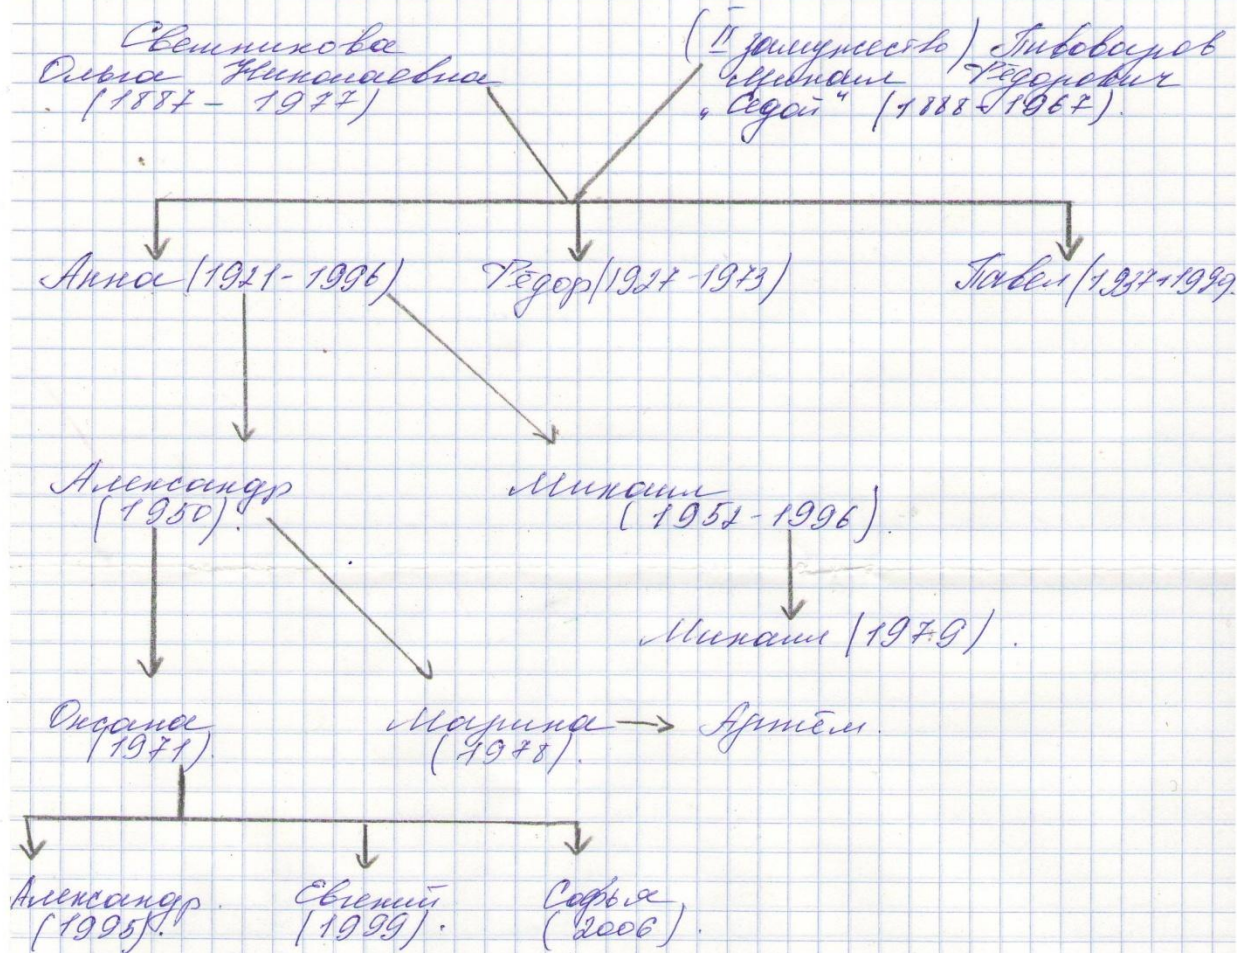 Свешникова
Ольга Николаевна
(1887 - 1977)
(II замужество) Пивоваров
Михаил Фёдорович
„Седой“ (1888 - 1967).
Анна (1921 - 1996)
Фёдор (1927 - 1973)
Павел (1937 - 1999)
Александр
(1950).
Михаил
(1952 - 1996).
Михаил (1979).
Оксана
(1971).
Марина
(1978).
Артём.
Александр.
(1995).
Евгений
(1999).
Софья
(2006).